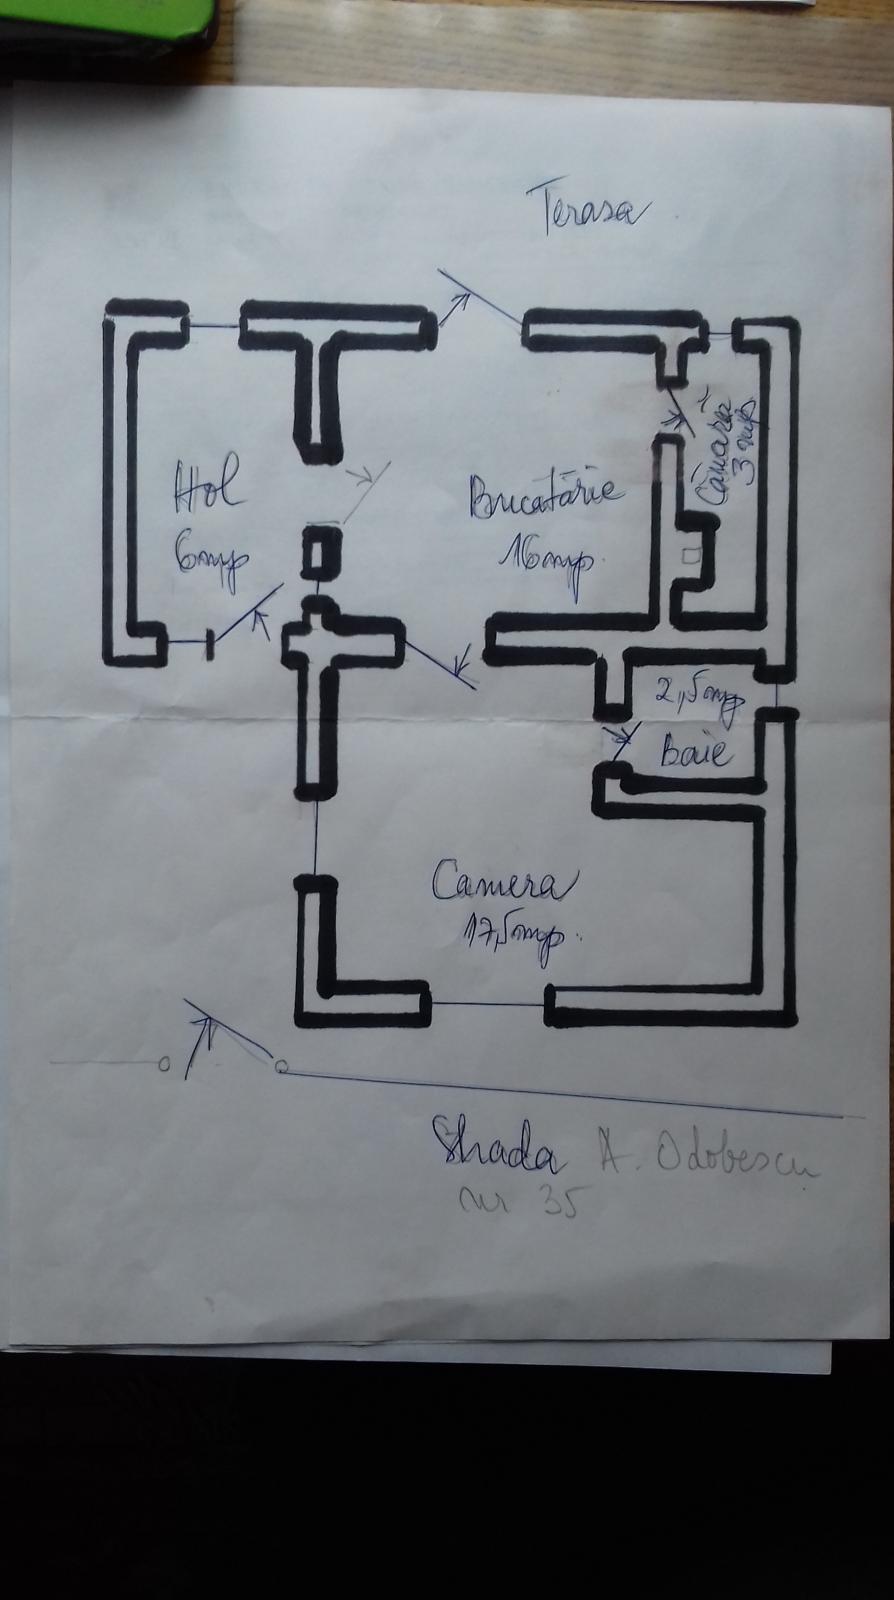 Terasa
Hol
6mp
Bucatărie
16mp.
Cămară
3 mp.
2,5mp
Baie
Camera
17,5mp.
Strada A. Odobescu
nr 35